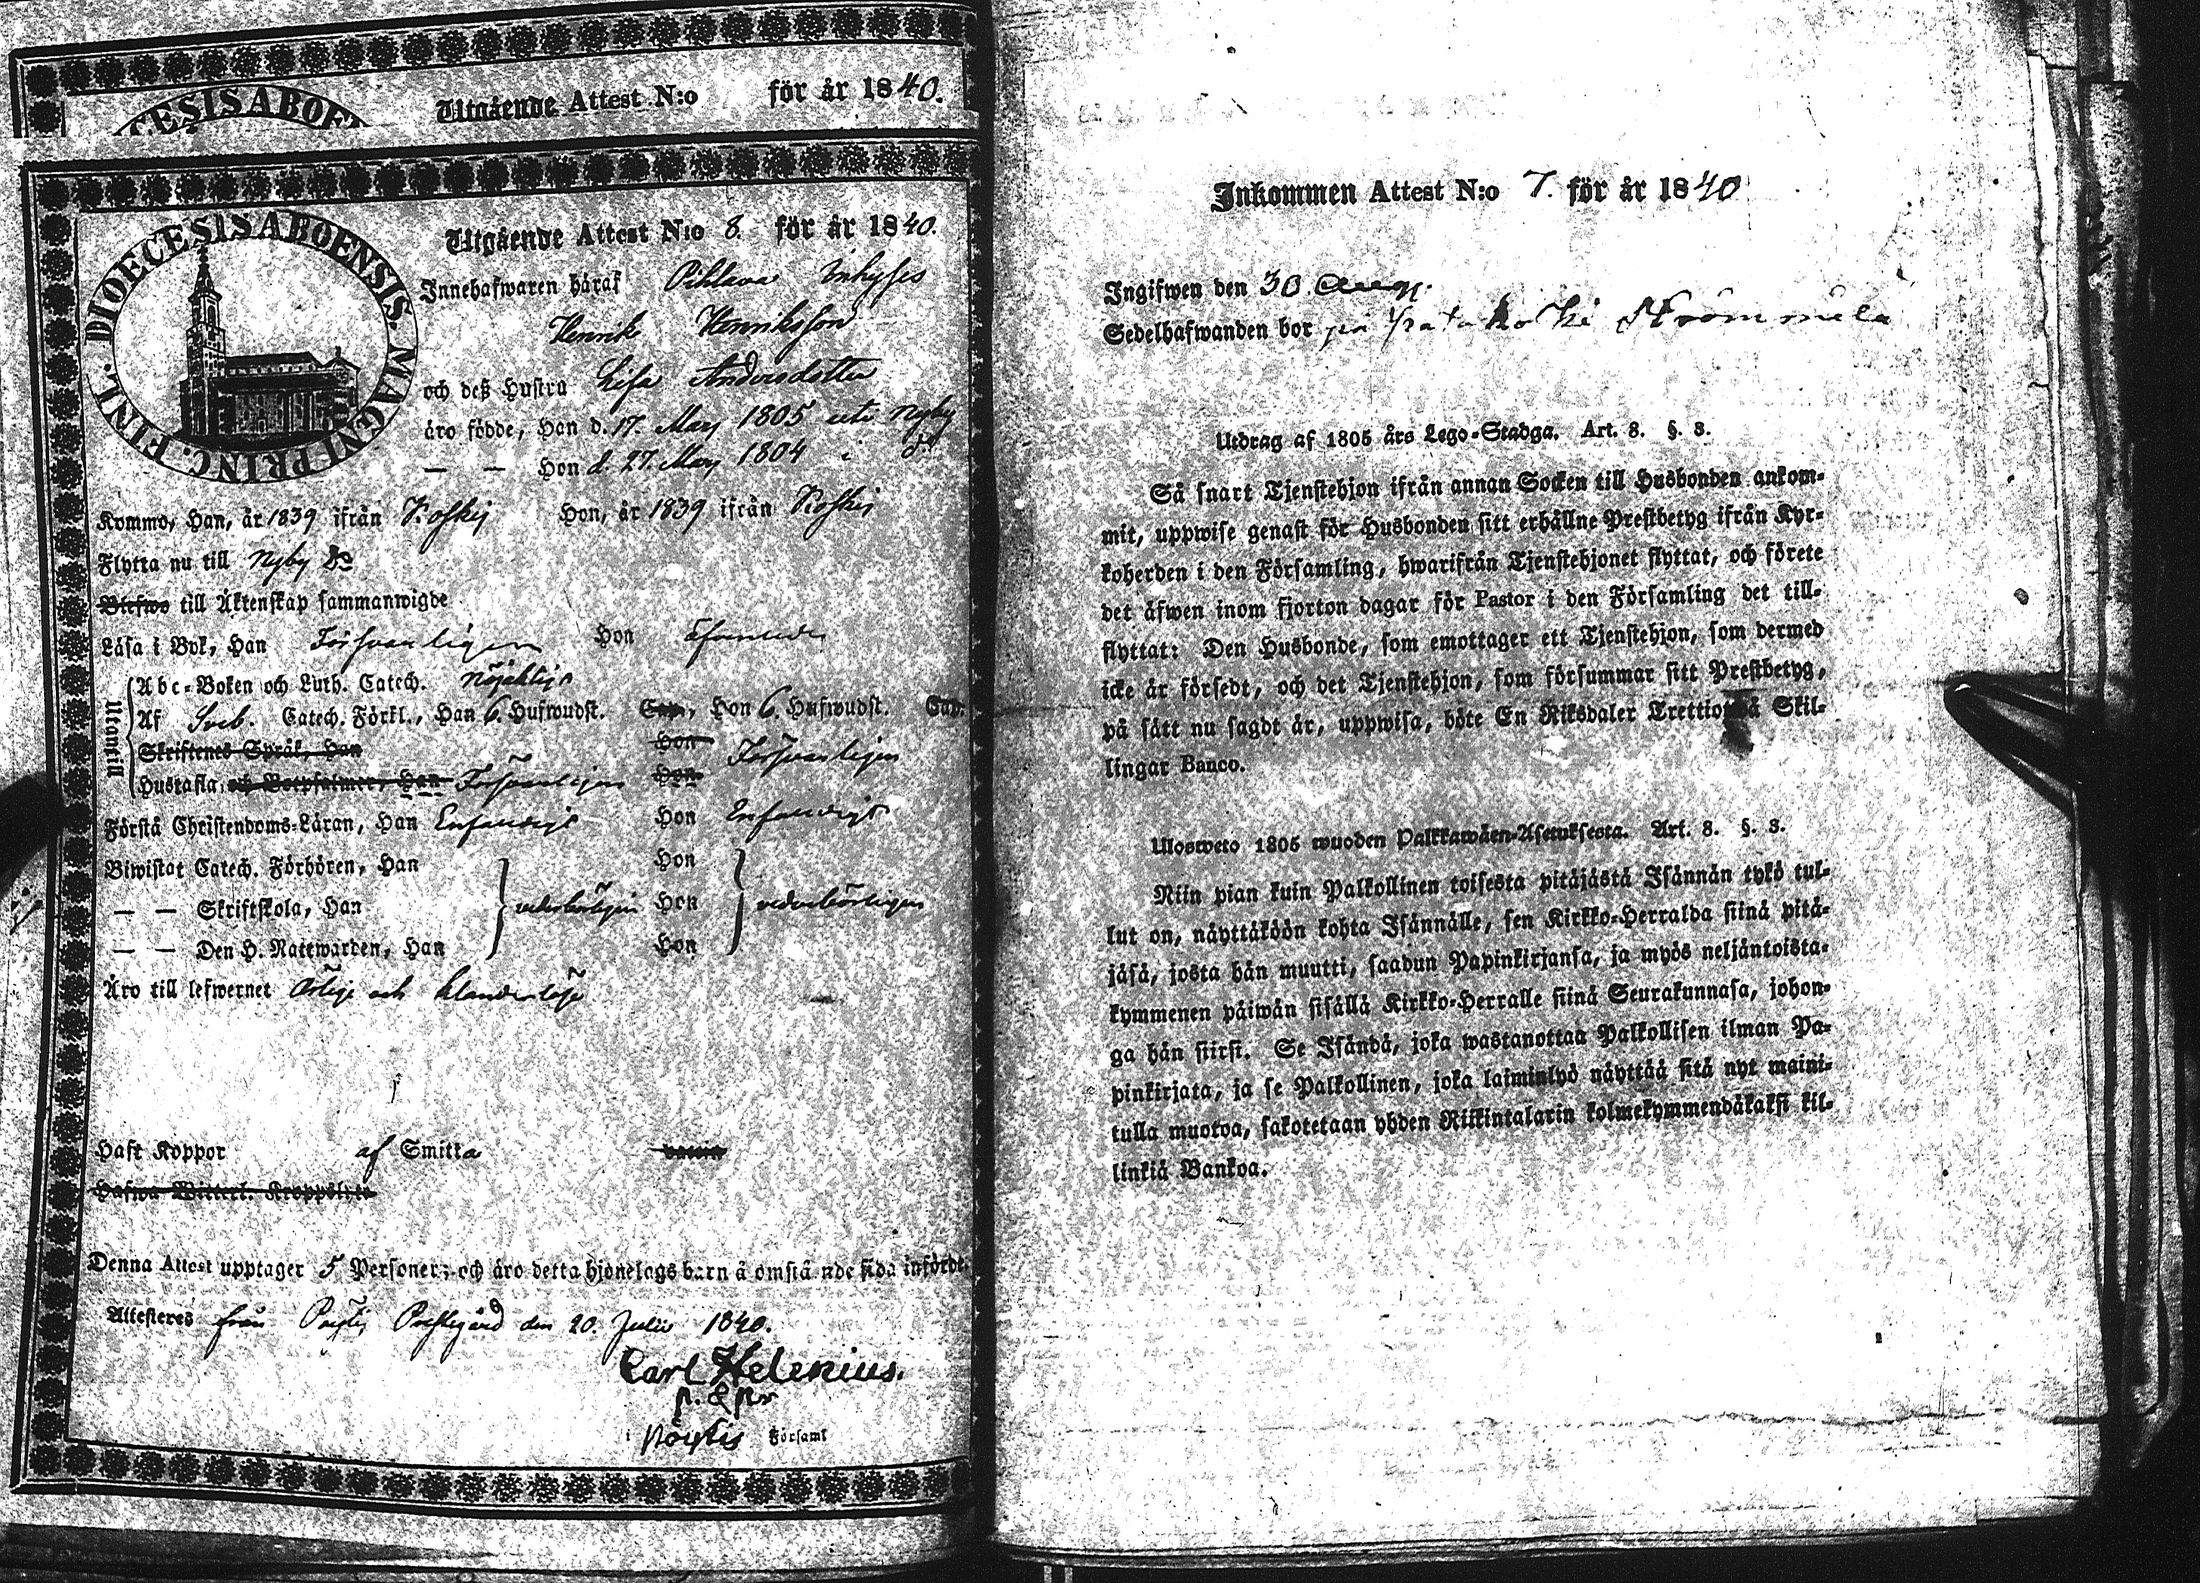 CESIS ABOE
Utgående Attest N:o för år 1840.
DIOECESIS ABOENSIS. MAGNI PRINC. FINL.
Utgående Attest N:o 8. för år 1840.
Innehafwaren häraf Pihlava Inhyses
Henrik Henriksson
och deß Hustru Lisa Andersdotter
äro födde, Han d. 17. Maij 1805 uti Nyby
— — Hon d. 27. Maij 1804 i do
Kommo, Han, år 1839 ifrån Koskij Hon, år 1839 ifrån Koskij
Flytta nu till Nyby
Blefwo till Äktenskap sammanwigde
Läsa i Bok, Han Försvarligen Hon
Utantill
Abc-Boken och Luth. Catech. Nöjaktigt
Af Sveb. Catech. Förkl., Han 6. Hufwudst. Cap., Hon 6. Hufwudst. Cap.
Skriftenes Språk, Han Hon Försvarligen
Hustafla och Botpsalmer, Han Försvarligen Hon
Första Christendoms-Läran, Han Enfaldigt Hon Enfaldigt
Biwistat Catech. Förhören, Han Hon
— — Skriftskola, Han vederbörligen Hon vederbörligen
— — Den H. Nattwarden, Han Hon
Äro till lefwernet Ärlige och klanderlöse
Haft Koppor af Smitta
Hafwa Witterl. Kroppslyte
Denna Attest upptager 5 Personer; och äro detta hjonelags barn å omstående sida införde.
Attesteras från Pöytis Prestgård den 20. Julii 1840.
Carl Helenius.
i Pöytis Församl
Inkommen Attest N:o 7. för år 1840
Ingifwen den 30. Aug.
Sedelhafwanden bor på
Utdrag af 1805 års Lego-Stadga. Art. 8. §. 3.
Så snart Tjenstehjon ifrån annan Socken till Husbonden ankom-
mit, uppwise genast för Husbonden sitt erhållne Prestbetyg ifrån Kyr-
koherden i den Församling, hwarifrån Tjenstehjonet flyttat, och förete
det äfwen inom fjorton dagar för Pastor i den Församling det till-
flyttat: Den Husbonde, som emottager ett Tjenstehjon, som dermed
icke är försedt, och det Tjenstehjon, som försummar sitt Prestbetyg,
på sätt nu sagdt är, uppwisa, böte En Riksdaler Trettiotvå Skil-
lingar Banco.
Ulosweto 1805 wuoden Palkkawäen-Asetuksesta. Art. 8. §. 3.
Niin pian kuin Palkollinen toisesta pitäjästä Isännän tykö tul-
lut on, näyttäköön kohta Isännälle, sen Kirkko-Herralda siinä pitä-
jäsä, josta hän muutti, saadun Papinkirjansa, ja myös neljäntoista-
kymmenen päiwän sisällä Kirkko-Herralle siinä Seurakunnasa, johon-
ga hän siirsi. Se Isändä, joka wastanottaa Palkollisen ilman Pa-
pinkirjata, ja se Palkollinen, joka laiminlyö näyttää sitä nyt maini-
tulla muotoa, sakotetaan yhden Riikintalarin kolmekymmendäkaksi kil-
linkiä Bankoa.